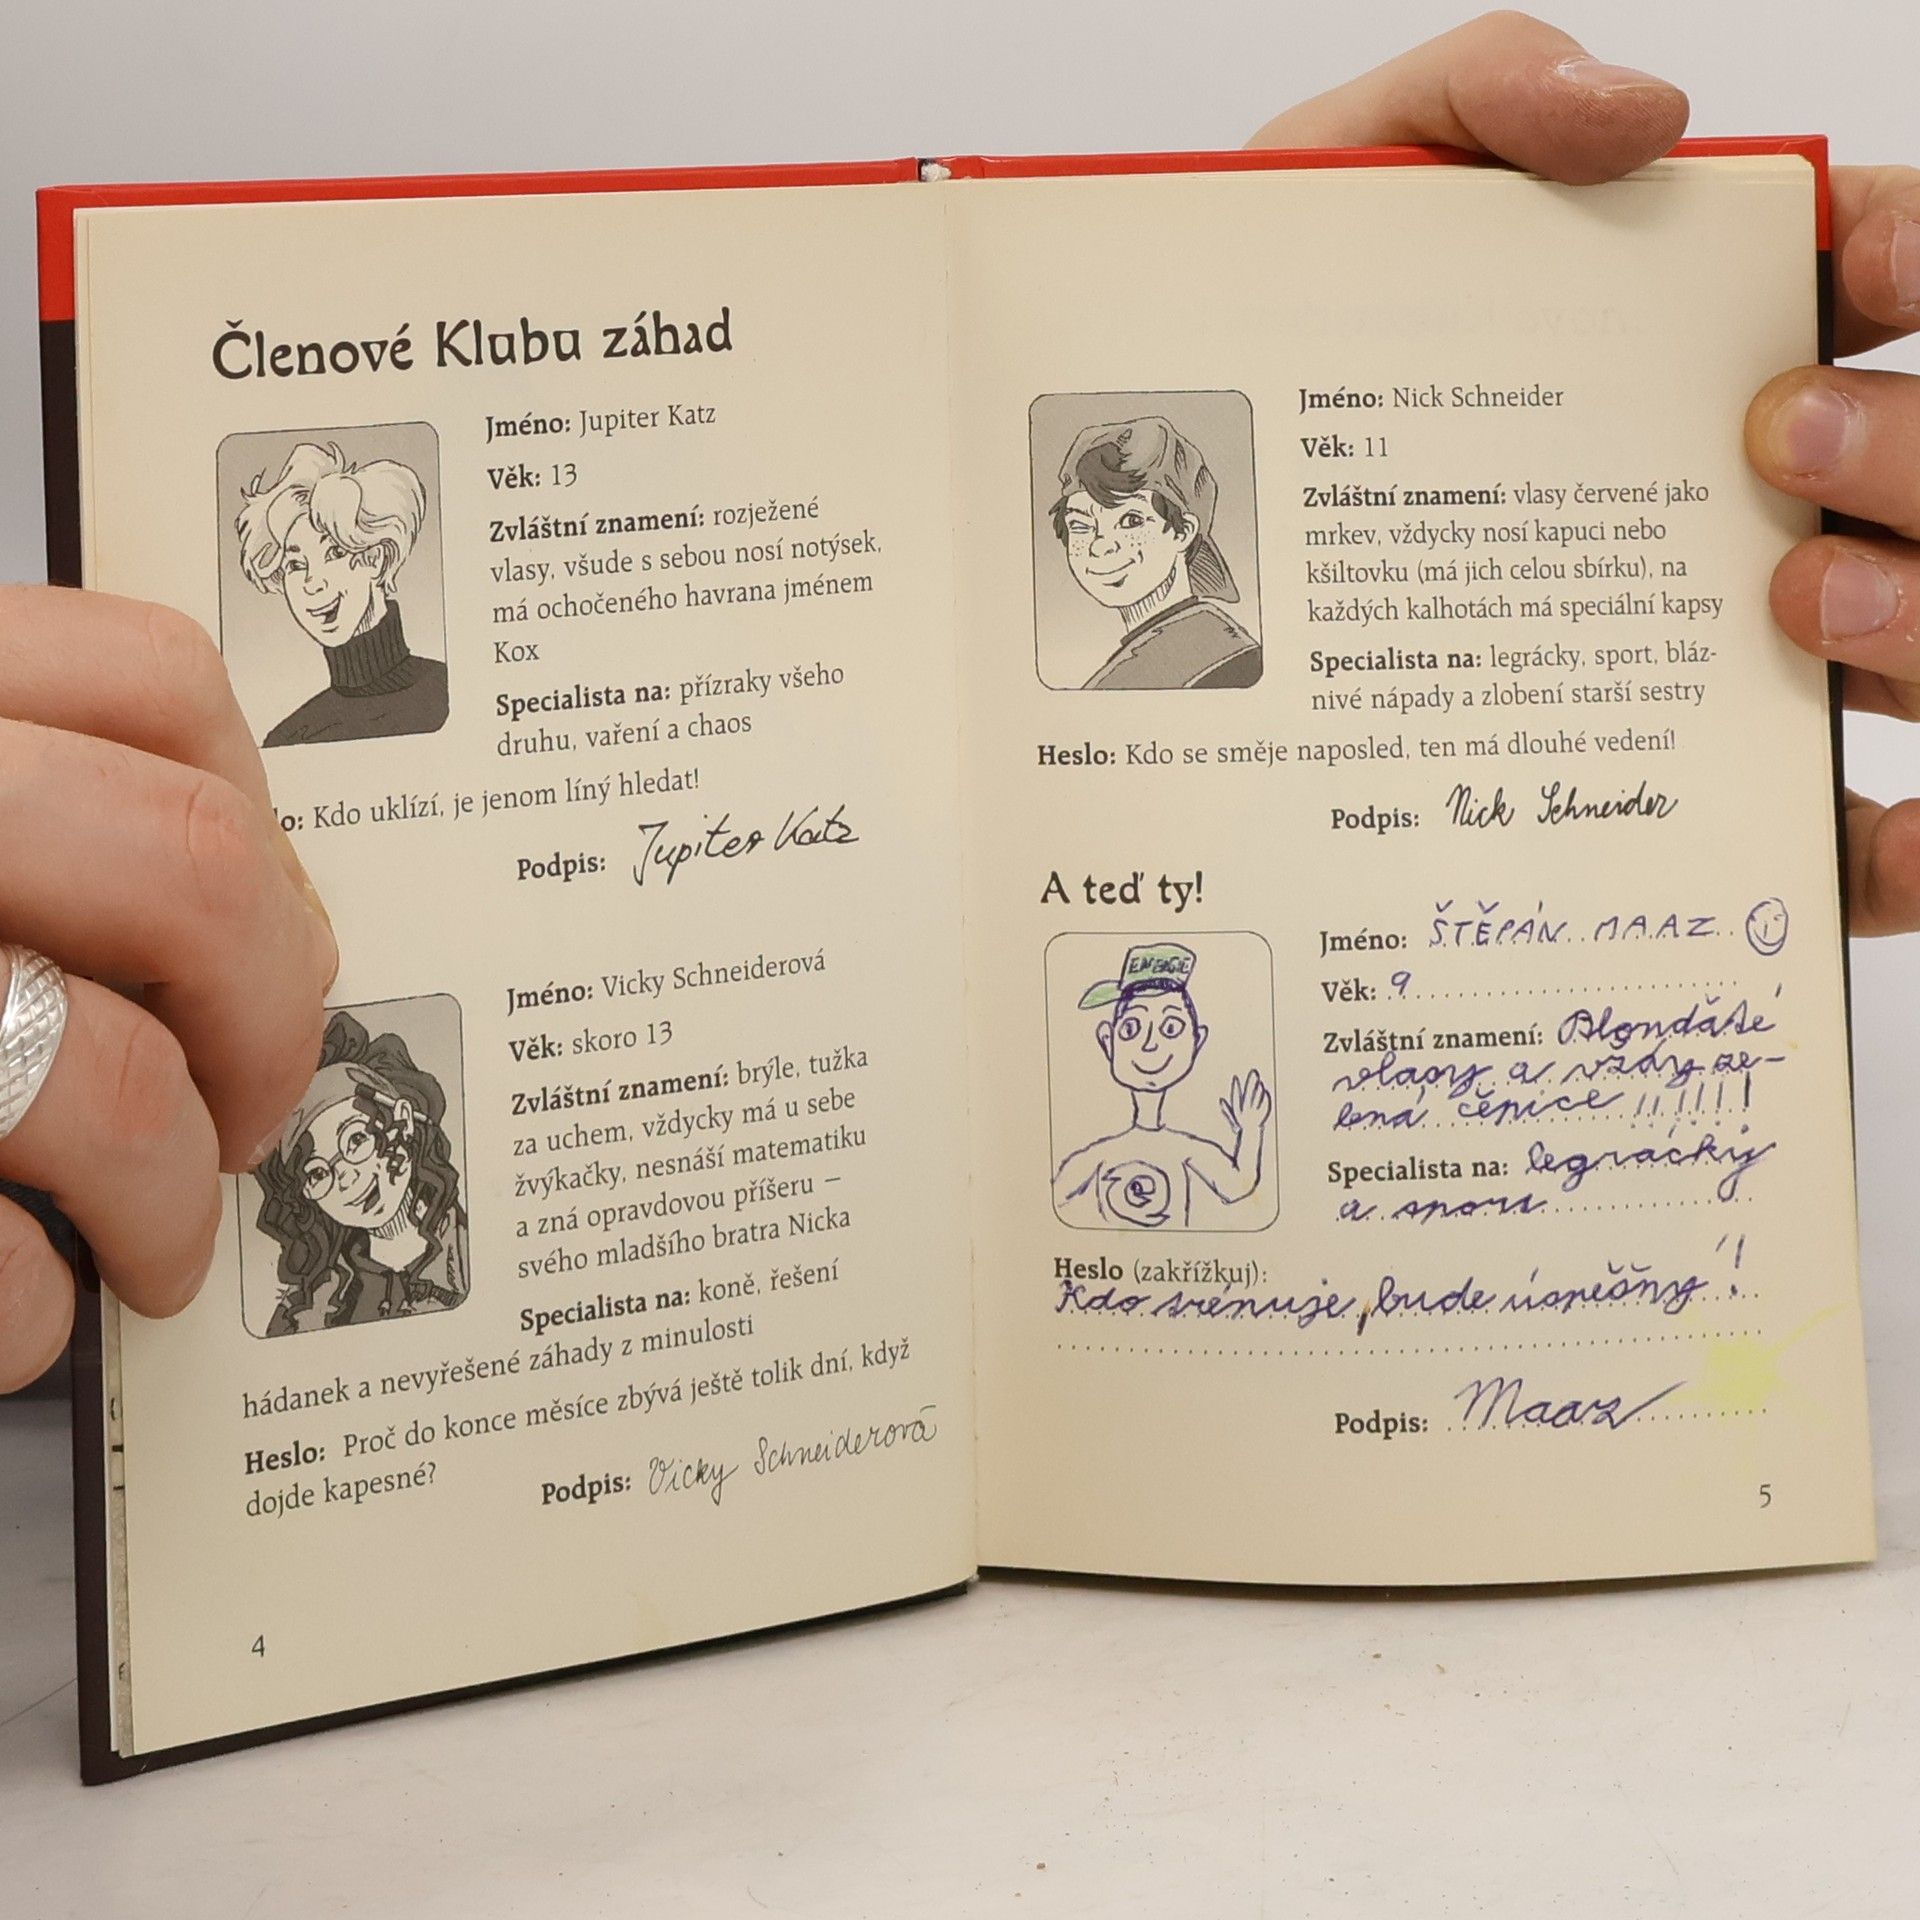 Členové Klubu záhad
Jméno: Jupiter Katz
Věk: 13
Zvláštní znamení: rozježené
vlasy, všude s sebou nosí notýsek,
má ochočeného havrana jménem
Kox
Specialista na: přízraky všeho
druhu, vaření a chaos
o: Kdo uklízí, je jenom líný hledat!
Podpis: Jupiter Katz
Jméno: Vicky Schneiderová
Věk: skoro 13
Zvláštní znamení: brýle, tužka
za uchem, vždycky má u sebe
žvýkačky, nesnáší matematiku
a zná opravdovou příšeru –
svého mladšího bratra Nicka
Specialista na: koně, řešení
hádanek a nevyřešené záhady z minulosti
Heslo: Proč do konce měsíce zbývá ještě tolik dní, když
dojde kapesné?
Podpis: Vicky Schneiderová
4
Jméno: Nick Schneider
Věk: 11
Zvláštní znamení: vlasy červené jako
mrkev, vždycky nosí kapuci nebo
kšiltovku (má jich celou sbírku), na
každých kalhotách má speciální kapsy
Specialista na: legrácky, sport, bláz-
nivé nápady a zlobení starší sestry
Heslo: Kdo se směje naposled, ten má dlouhé vedení!
Podpis: Nick Schneider
A teď ty!
Jméno: ŠTĚPÁN MAAZ
Věk: 9
Zvláštní znamení: Blonďaté
vlasy a vždy ze-
lená čepice !!!!!!
Specialista na: legrácky
a sport
Heslo (zakřížkuj):
Kdo trénuje, bude úspěšný!
Podpis: Maaz
5